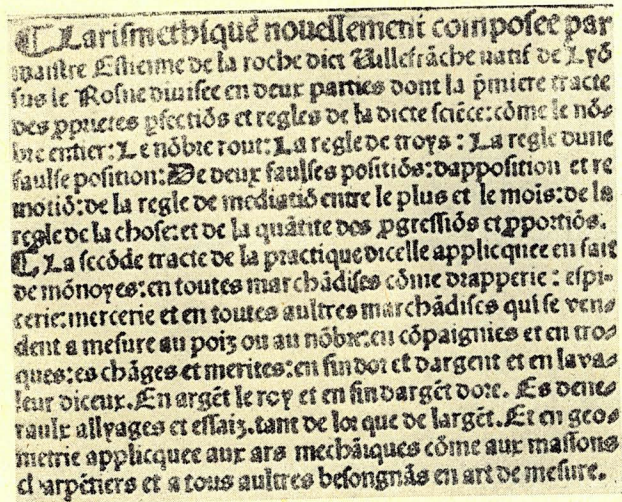 ¶ Larismethique nouellement composee par
maistre Estienne de la roche dict Villefrãche natif de Lyõ
sus le Rosne diuisee en deux parties dont la p̃miere tracte
des ꝓpꝛietes ꝑfectiõs et regles de la dicte sciẽce: cõme le nõ⸗
bre entier: Le nõbre rout: La regle de troys: La regle dune
faulse position: De deux faulses positiõs: dapposition et re
motiõ: de la regle de mediatiõ entre le plus et le mois: de la
regle de la chose: et de la quãtite des ꝓgressiõs et ꝓportiõs.
¶ La secõde tracte de la practique dicelle applicquee en fait
de mõnoyes: en toutes marchãdises cõme drapperie: espi⸗
cerie: mercerie et en toutes aultres marchãdises qui se ven⸗
dent a mesure au poiz ou au nõbre: en cõpaignies et en tro⸗
ques: es chãges et merites: en fin dor et dargent et en lava⸗
leur diceux. En argẽt le roy et en fin dargẽt dore. Es dene⸗
raulx allyages et essaiz. tant de lor que de largẽt. Et en geo⸗
metrie applicquee aux ars mechãiques cõme aux massons
charpẽtiers et a tous aultres besongnãs en art de mesure.